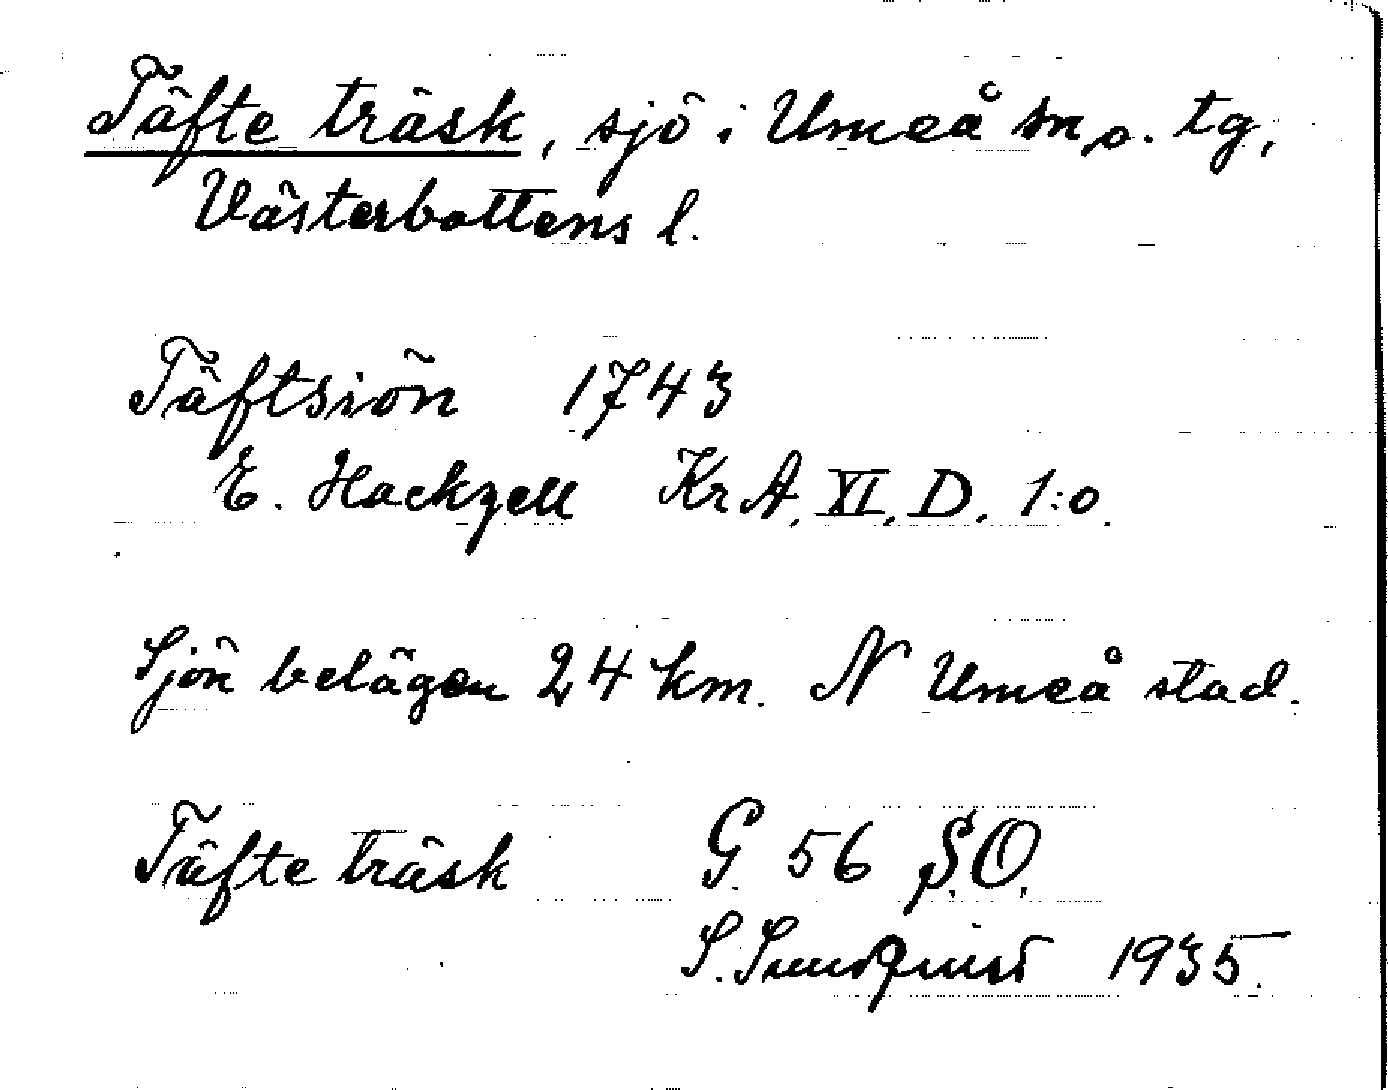 Täfte träsk, sjö i Umeå sn, o. tg,
Västerbottens l.
Täftsiön 1743
E. Hackzell KrA. XI. D. 1:o.
Sjön belägen 24 km. N Umeå stad.
Täfte träsk G 56 S.O.
S. Sundquist 1935.